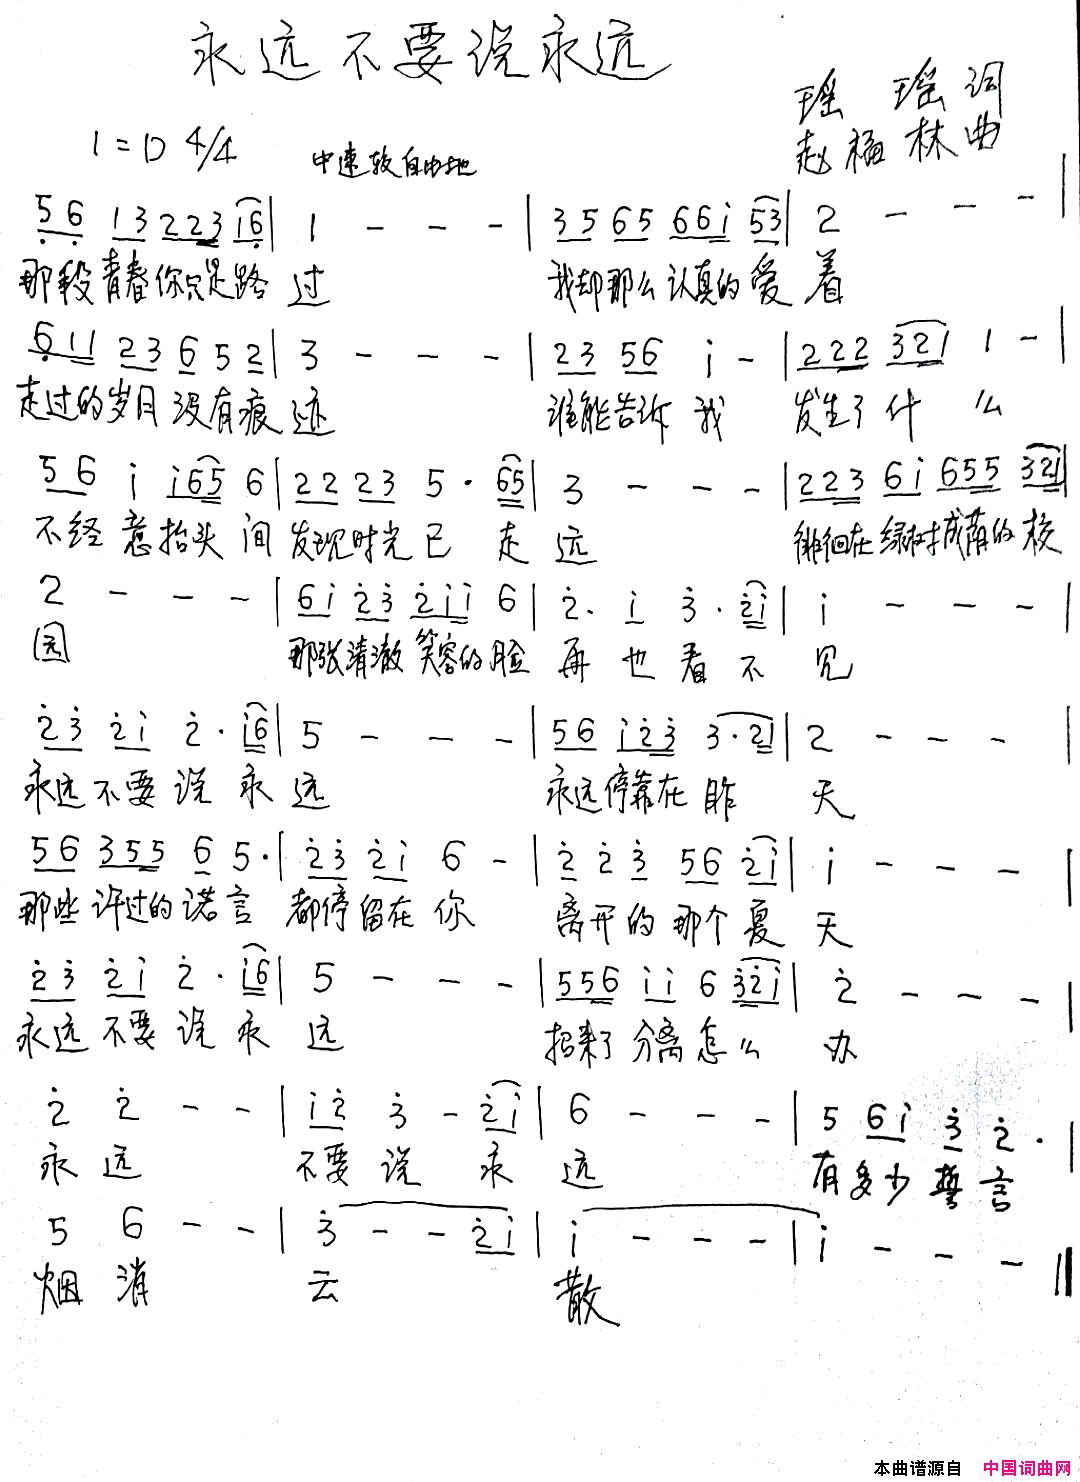 永远不要说永远
瑶 瑶 词
赵福林曲
1=D 4/4 中速较自由地
5 6 1 3 2 2 3 i 6 | 1 - - - | 3 5 6 5 6 6 i 5 3 | 2 - - - |
那段青春你只是路 过 我却那么认真的爱 着
6 1 1 2 3 6 5 2 | 3 - - - | 2 3 5 6 i - | 2 2 2 3 2 1 1 - |
走过的岁月没有痕 迹 谁能告诉 我 发生了什 么
5 6 i i 6 5 6 | 2 2 2 3 5 · 6 5 | 3 - - - | 2 2 3 6 i 6 5 5 3 2 1 |
不经意抬头间 发现时光已 走 远 徘徊在绿树成荫的校
2 - - - | 6 i 2 3 2 i i 6 | 2 · i 3 · 2 i | i - - - |
园 那张清澈笑容的脸 再 也 看 不 见
2 3 2 i 2 · i 6 | 5 - - - | 5 6 i 2 3 3 · 2 1 | 2 - - - |
永远不要说 永 远 永远停靠在昨 天
5 6 3 5 5 6 5 · | 2 3 2 i 6 - | 2 2 3 5 6 2 i | i - - - |
那些许过的诺言 都停留在你 离开的那个夏 天
2 3 2 i 2 · i 6 | 5 - - - | 5 5 6 i i 6 3 2 i | 2 - - - |
永远不要说 永 远 招来了分离怎么 办
2 2 - - | i 2 3 - 2 i | 6 - - - | 5 6 i 3 2 · |
永 远 不要 说 永 远 有多少誓言
5 6 - - | 3 - - 2 i | i - - - | i - - - ‖
烟 消 云 散
本曲谱源自 中国词曲网